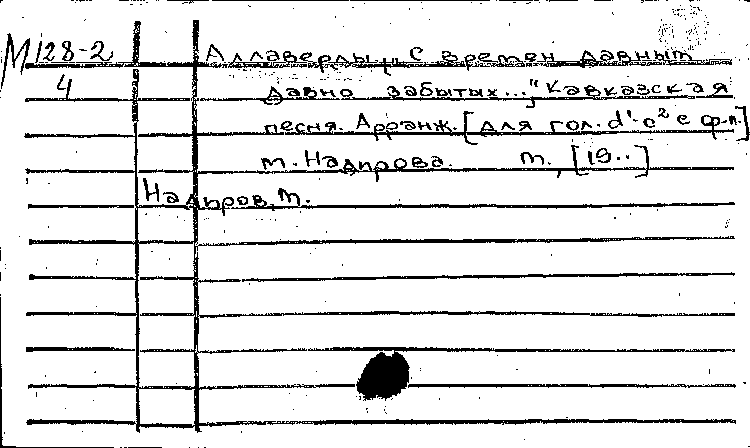 М 128-2 Аллаверды „С времен давным
4 давно забытых...", Кавказская
песня. Арранж. [для гол. d¹-c² с ф-п.]
М. Надирова. М., [19..]
Надиров, М.